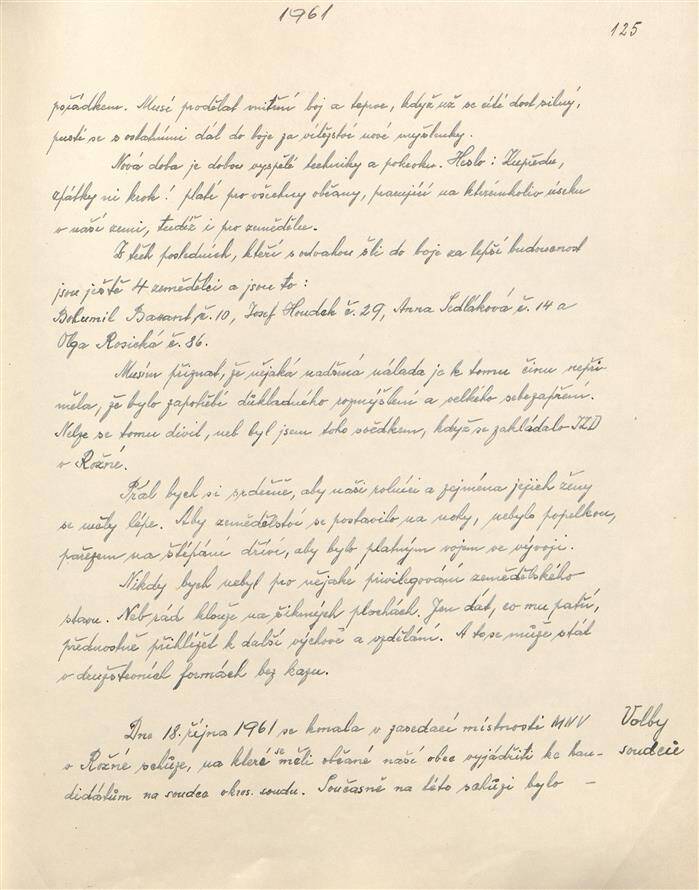 1961
125
pořádkem. Musí prodělat vnitřní boj a teprve, když už se cítí dost silný,
pustí se s ostatními dál do boje za vítězství nové myšlenky.
Nová doba je dobou vyspělé techniky a pokroku. Heslo: Kupředu,
zpátky ni krok! platí pro všechny občany, pracující na kterémkoliv úseku
v naší zemi, tudíž i pro zemědělce.
Z těch posledních, kteří s odvahou šli do boje za lepší budoucnost
jsou ještě 4 zemědělci a jsou to:
Bohumil Basant, č. 10, Josef Houdek č. 29, Anna Sedláková č. 14 a
Olga Rosická č. 36.
Musím přiznat, že nějaká nadšená nálada je k tomu činu nepři
měla, že bylo zapotřebí důkladného rozmyšlení a velkého sebezapření.
Nelze se tomu divit, neb byl jsem toho svědkem, když se zakládalo JZD
v Rožné.
Přál bych si srdečně, aby naši rolníci a zejména jejich ženy
se měly lépe. Aby zemědělství se postavilo na nohy, nebylo popelkou,
pařezem na štípání dříví, aby bylo platným vojem ve vývoji.
Nikdy bych nebyl pro nějaké privilegování zemědělského
stavu. Neb rád klouže na šikmých plochách. Jen dát, co mu patří,
přednostně přihlížet k další výchově a vzdělání. A to se může stát
v družstevních formách bez kazu.
Dne 18. října 1961 se konala v zasedací místnosti MNV
Volby
v Rožné schůze, na které se měli občané naší obce vyjádřiti ke kan-
soudců
didátům na soudce okres. soudu. Současně na této schůzi bylo –